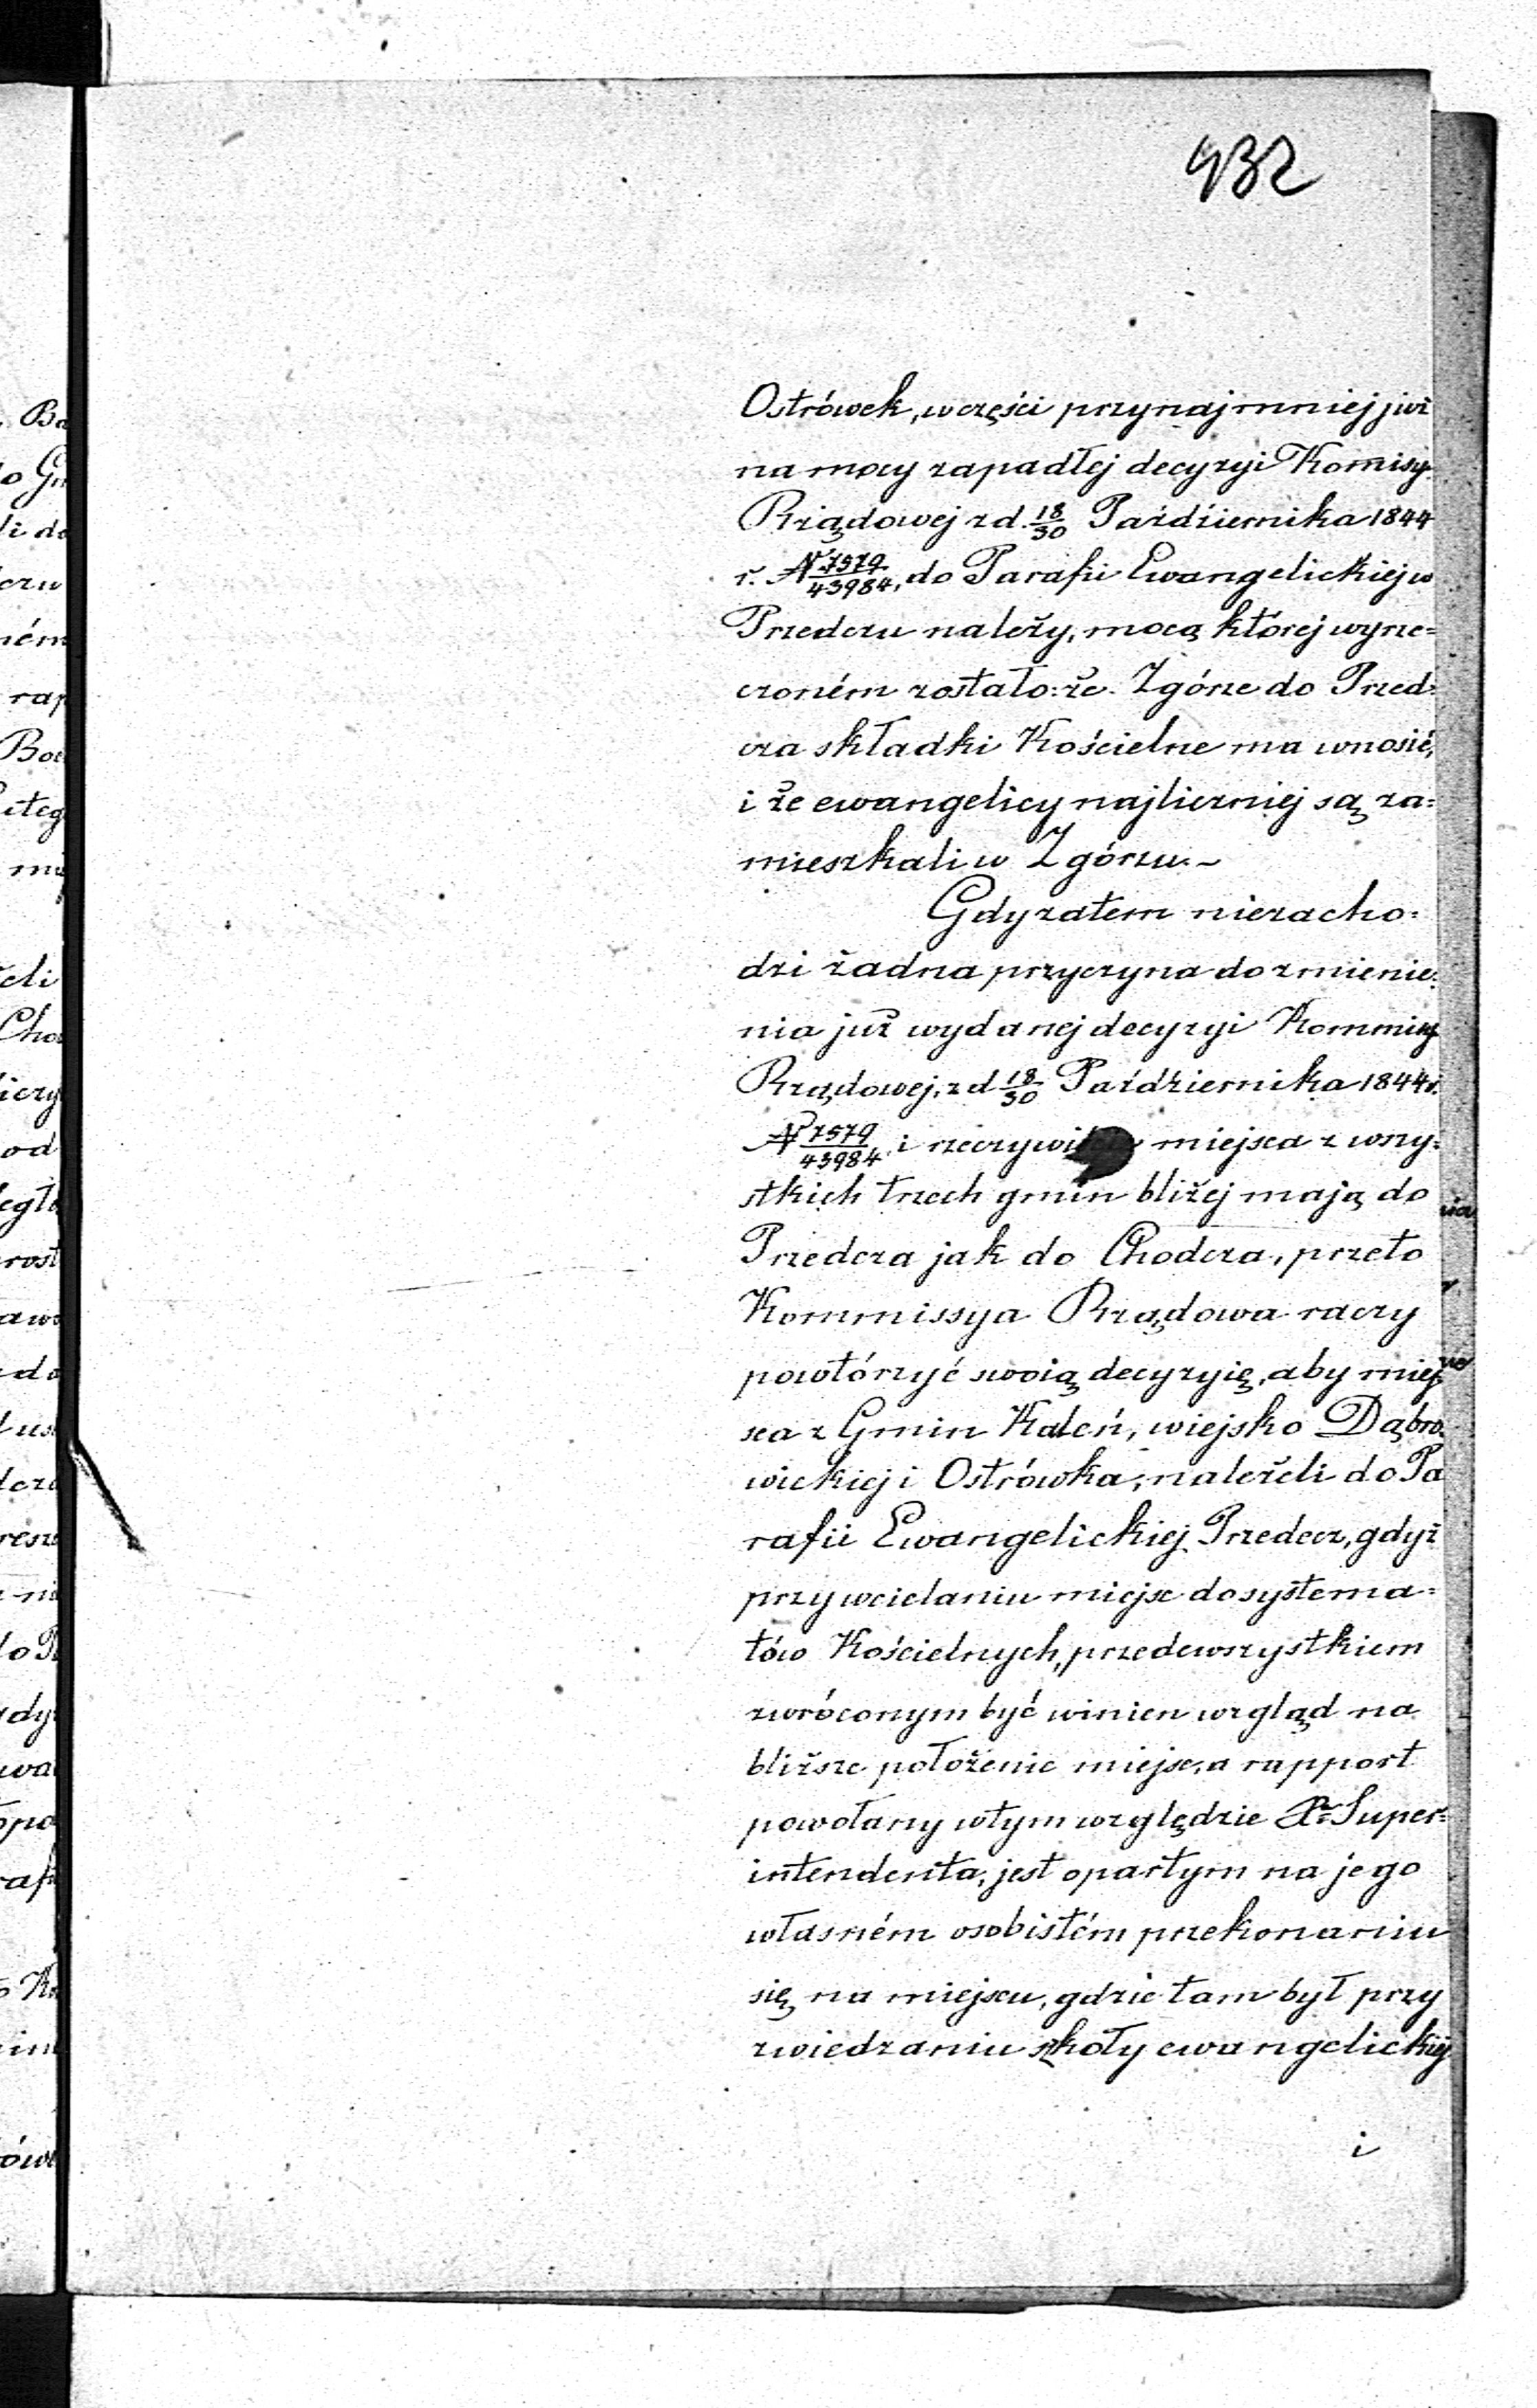 432
Ostrówek, w części przynajmniej już
na mocy zapadłej decyzyi Komisyi
Rządowej z d. 18/30 Październka 1844
r. N 7579/43984, do Parafii Ewangelickiej w
Przedczu należy, mocą której wyrze=
czoném zostało: że Zgórze do Przed=
cza składki Kościelne ma wnosić,
i że ewangelicy najliczniej są za=
mieszkali w Zgórzu.-
Gdy zatem niezacho=
dzi żadna przyczyna do zmienie=
nia już wydanej decyzyi Kommisy
Rządowej, z d 18/30 Października 1844 r.
N 7579/43984. i miejsca z wszy=
stkich trzech gmin bliżej mają do
Przedcza jak do Chodcza, przeto
Kommissya Rządowa raczy
powtórzyć swoią decyzyię, aby miej=
sca z Gmin Kaleń, wiejsko Dąbro=
wickiej i Ostrówka, należeli do Pa
rafii Ewangelickiej Przedecz, gdyż
przy wcielaniu miejsc do systema=
tów Kościelnych, przedewszystkiem
zwróconym być winien wzgląd na
bliższe położenie miejsc, a rapport
powołany w tym względzie Super=
intendenta, jest opartym na jego
własném osobistém przekonaniu
się na miejscu, gdzie tam był przy
zwiedzaniu szkoły ewangelickiej
i